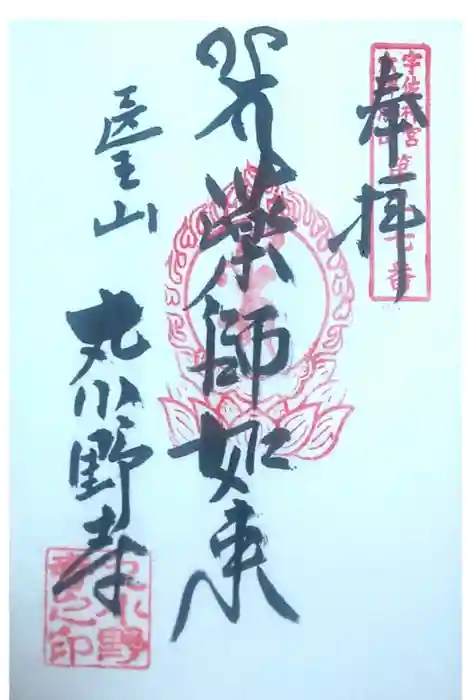 奉拝
宇佐神宮
薬師如来
医王山
丸小野寺
丸小野
寺之印